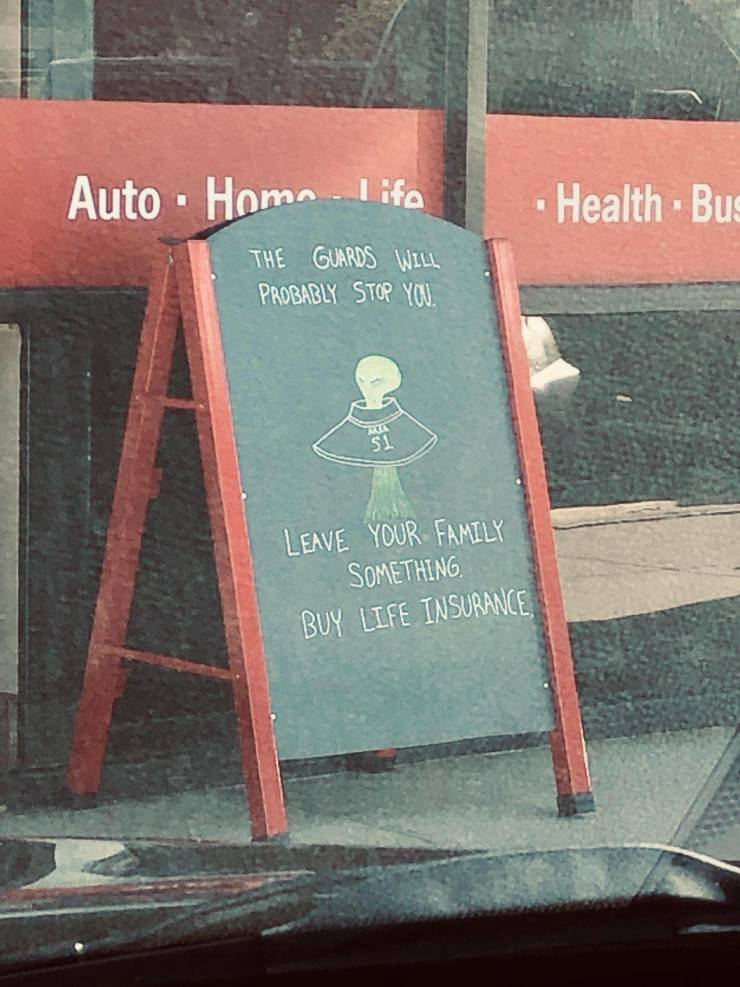 Auto · Home · Life · Health ·
THE GUARDS WILL
PROBABLY STOP YOU.
AREA
51
LEAVE YOUR FAMILY
SOMETHING.
BUY LIFE INSURANCE.